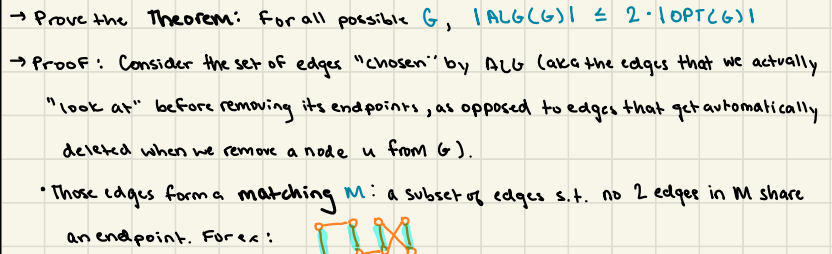 → Prove the Theorem: For all possible G, |ALG(G)| ≤ 2·|OPT(G)|
→ Proof: Consider the set of edges "chosen" by ALG (aka the edges that we actually
"look at" before removing its endpoints, as opposed to edges that get automatically
deleted when we remove a node u from G).
• Those edges form a matching M: a subset of edges s.t. no 2 edges in M share
an endpoint. For ex: